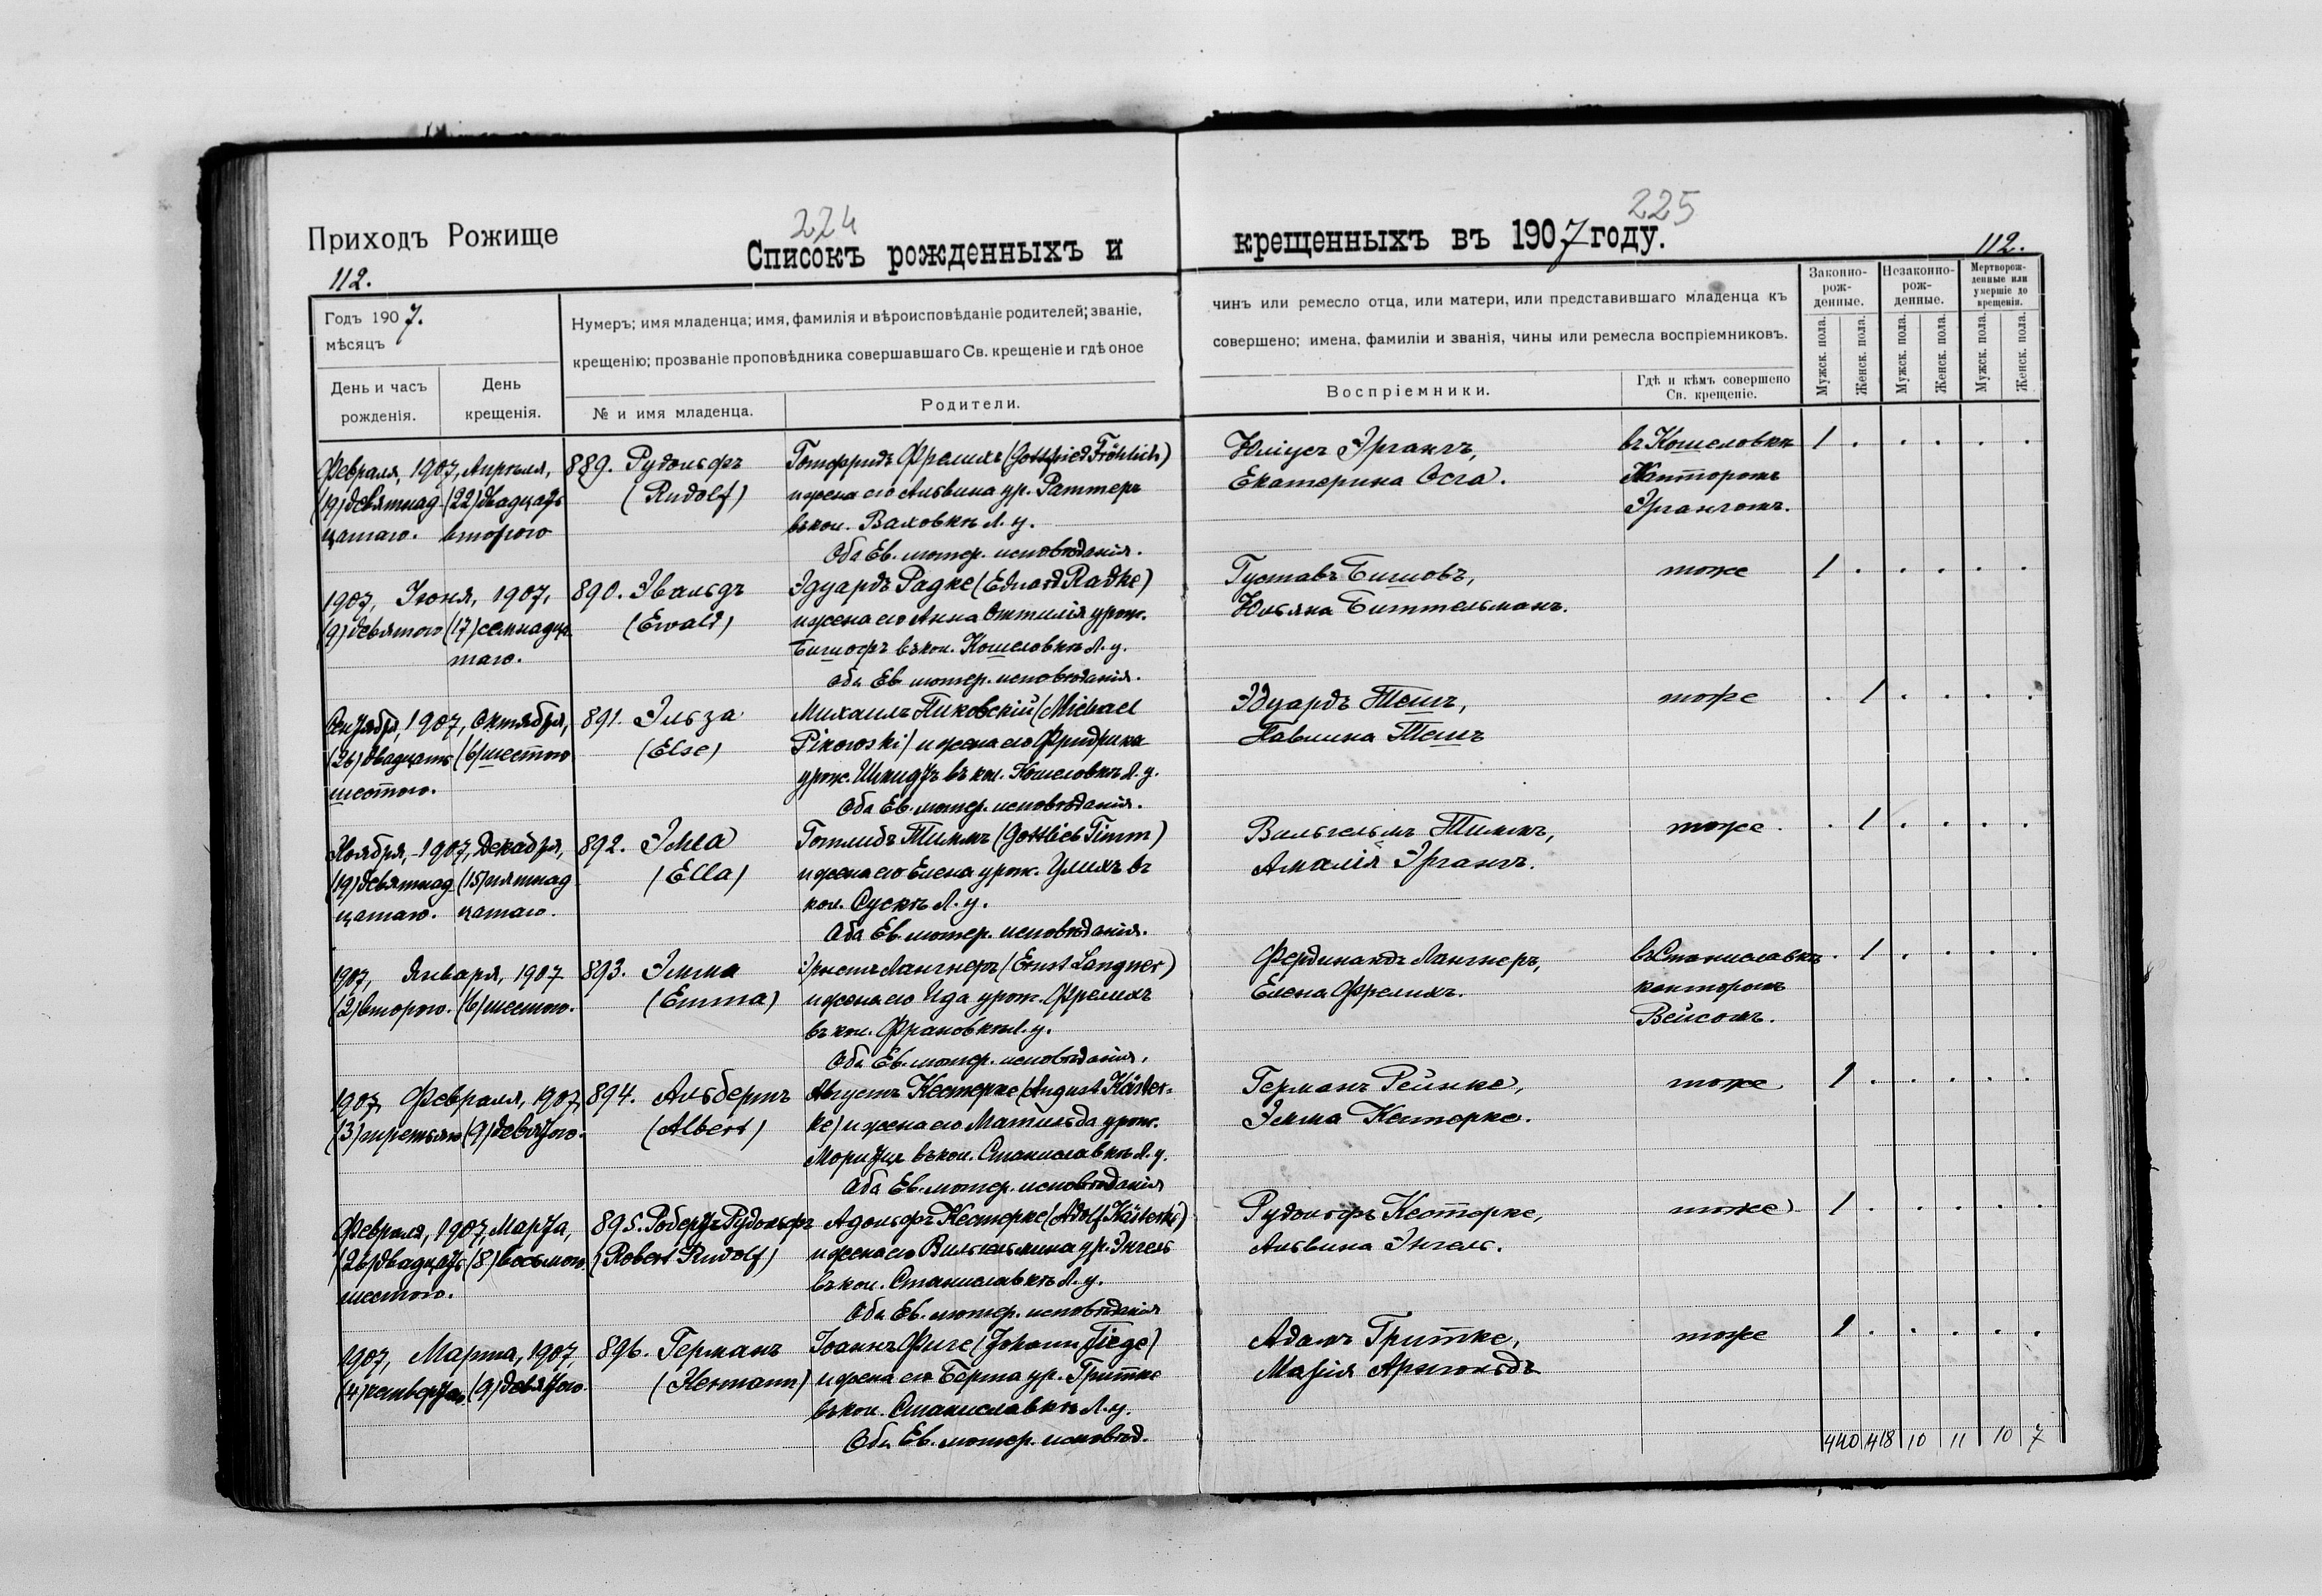 224
225
Приходъ Рожище
Списокъ рожденныхъ и
крещенныхъ въ 1907 году.
112.
112.
Годъ 1907.
мѣсяцъ
День и часъ
рожденія.
День
крещенія.
Нумеръ; имя младенца; имя, фамилія и вѣроисповѣданіе родителей; званіе,
крещенію; прозваніе проповѣдника совершавшаго Св. крещеніе и гдѣ оное
№ и имя младенца.
Родители.
чинъ или ремесло отца, или матери, или представившаго младенца къ
совершено; имена, фамиліи и званія, чины или ремесла воспріемниковъ.
Воспріемники.
Гдѣ и кѣмъ совершено
Св. крещеніе.
Законно-
рож-
денные.
Незаконно-
рож-
денные.
Мертворож-
денные или
умершіе до
крещенія.
Мужск. пола.
Женск. пола.
Мужск. пола.
Женск. пола.
Мужск. пола.
Женск. пола.
Февраля, 1907, Апрѣля,
(19) девятнад (22) двадцать
цатаго. второго
889. Рудольфъ
(Rudolf)
Готфридъ Фрелихъ (Gottfried Fröhlich)
и жена его Альвина ур. Раттеръ
въ кол. Ваховкѣ Л. у.
Оба Ев. лютер. исповѣданія.
Юліусъ Эргангъ,
Екатерина Осга.
въ Кошеловкѣ
Канторомъ
Эргангомъ.
1 . . . . .
1907, Іюня, 1907,
(9) девятого (17) семнадца
таго.
890. Эвальдъ
(Ewald)
Эдуардъ Радке (Eduard Radke)
и жена его Анна Оттилія урож.
Бишофъ въ кол. Кошеловкѣ Л. у.
Оба Ев. лютер. исповѣданія.
Густавъ Бишовъ,
Юльяна Биттельманъ.
тоже
1 . . . . .
Сентября, 1907, Октября,
(26) двадцать (6) шестого
шестого.
891. Эльза
(Else)
Михаилъ Пиковскій (Michael
Pikowski) и жена его Фридрика
урож. Шмидтъ въ кол. Кошеловкѣ Л. у.
Оба Ев. лютер. исповѣданія.
Эдуардъ Тешъ,
Павлина Тешъ
тоже
. 1 . . . .
Ноября, 1907, Декабря,
(19) девятнад (15) пятнад
цатаго. цатаго.
892. Элла
(Ella)
Готлибъ Тиммъ (Gottlieb Timm)
и жена его Елена урож. Улихъ въ
кол. Сускѣ Л. у.
Оба Ев. лютер. исповѣданія.
Вильгельмъ Тиммъ,
Амалія Эргангъ.
тоже.
. 1 . . . .
1907, Января, 1907
(2) второго. (6) шестого.
893. Эмма
(Emma)
Эрнстъ Лангнеръ (Ernst Langner)
и жена его Ида урож. Фрелихъ
въ кол. Францовкѣ Л. у.
Оба Ев. лютер. исповѣданія.
Фердинандъ Лангнеръ,
Елена Фрелихъ.
въ Станиславкѣ
канторомъ
Вейсомъ.
. 1 . . . .
1907, Февраля, 1907,
(3) третьяго (9) девятого.
894. Альбертъ
(Albert)
Августъ Кестерке (August Käster-
ke) и жена его Матильда урож.
Морицъ въ кол. Станиславкѣ Л. у.
Оба Ев. лютер. исповѣданія
Германъ Рейнке,
Эмма Кестерке.
тоже
1 . . . . .
Февраля, 1907, Марта,
(26) двадцать (8) восьмого
шестого.
895. Робертъ Рудольфъ
(Robert Rudolf)
Адольфъ Кестерке (Adolf Kästerke)
и жена его Вильгельмина ур. Энгель
въ кол. Станиславкѣ Л. у.
Оба Ев. лютер. исповѣданія
Рудольфъ Кестерке,
Альвина Энгель.
тоже
1 . . . . .
1907, Марта, 1907,
(4) четвертаго (9) девятого.
896. Германъ
(Hermann)
Іоаннъ Фиге (Johann Fiege)
и жена его Берта ур. Гритке
въ кол. Станиславкѣ Л. у.
Оба Ев. лютер. исповѣд.
Адамъ Гритке,
Марія Арнгольдъ
тоже
1 . . . . .
440 418 10 11 10 7